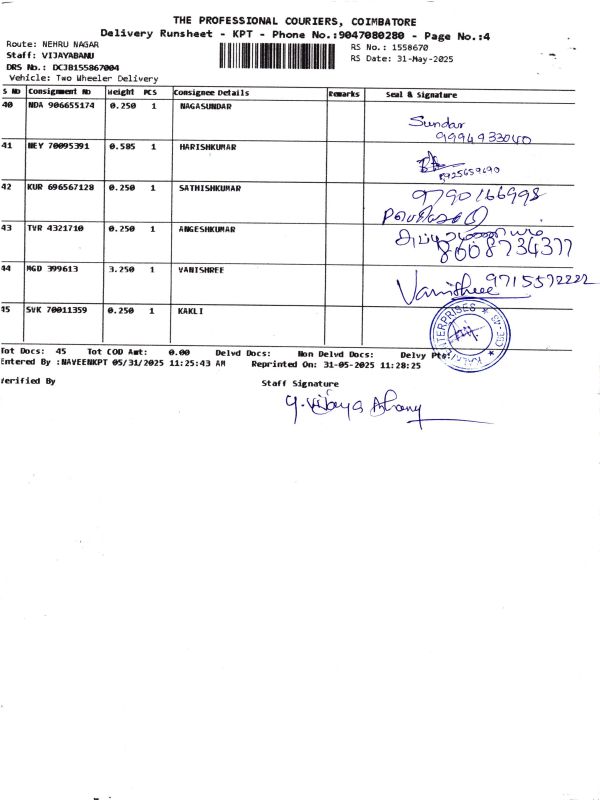 THE PROFESSIONAL COURIERS, COIMBATORE
Delivery Runsheet - KPT - Phone No.:9047080280 - Page No.:4
Route: NEHRU NAGAR RS No.: 1558670
Staff: VIJAYABANU RS Date: 31-May-2025
DRS No.: DCJB155867004
Vehicle: Two Wheeler Delivery
S No Consignment No Weight PCS Consignee Details Remarks Seal & Signature
40 NDA 906655174 0.250 1 NAGASUNDAR Sundar
9994933040
41 NEY 70095391 0.585 1 HARISHKUMAR
8925659690
42 KUR 696567128 0.250 1 SATHISHKUMAR 9790166998
43 TVR 4321710 0.250 1 ANGESHKUMAR
8608734377
44 MGD 399613 3.250 1 VANISHREE Vanishree 9715572222
45 SVK 70011359 0.250 1 KAKLI
ENTERPRISES
Tot Docs: 45 Tot COD Amt: 0.00 Delvd Docs: Non Delvd Docs: Delvy Pts:
Entered By :NAVEENKPT 05/31/2025 11:25:43 AM Reprinted On: 31-05-2025 11:28:25
Verified By Staff Signature